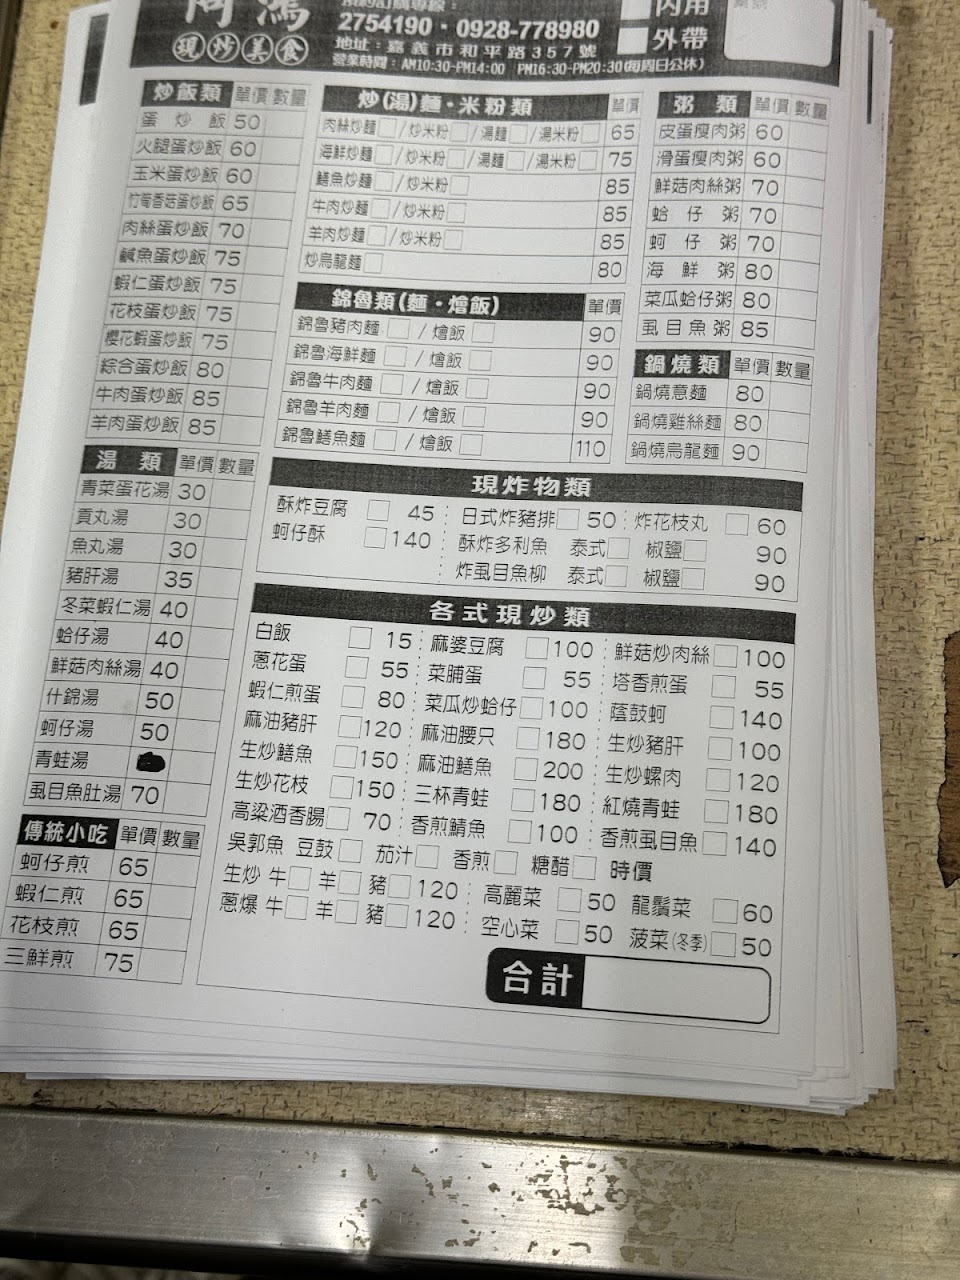 現炒美食
2754190・0928-778980
地址：嘉義市和平路357號
營業時間：AM10:30-PM14:00 PM16:30-PM20:30(每周日公休)
內用
外帶
炒飯類 單價 數量
蛋炒飯 50
火腿蛋炒飯 60
玉米蛋炒飯 60
竹筍香菇蛋炒飯 65
肉絲蛋炒飯 70
鹹魚蛋炒飯 75
蝦仁蛋炒飯 75
花枝蛋炒飯 75
櫻花蝦蛋炒飯 75
綜合蛋炒飯 80
牛肉蛋炒飯 85
羊肉蛋炒飯 85
湯類 單價 數量
青菜蛋花湯 30
貢丸湯 30
魚丸湯 30
豬肝湯 35
冬菜蝦仁湯 40
蛤仔湯 40
鮮菇肉絲湯 40
什錦湯 50
蚵仔湯 50
青蛙湯
虱目魚肚湯 70
傳統小吃 單價 數量
蚵仔煎 65
蝦仁煎 65
花枝煎 65
三鮮煎 75
炒(湯)麵・米粉類 單價
肉絲炒麵□/炒米粉□/湯麵□/湯米粉□ 65
海鮮炒麵□/炒米粉□/湯麵□/湯米粉□ 75
鱔魚炒麵□/炒米粉□ 85
牛肉炒麵□/炒米粉□ 85
羊肉炒麵□/炒米粉□ 85
炒烏龍麵□ 80
錦魯類(麵・燴飯) 單價
錦魯豬肉麵□/燴飯□ 90
錦魯海鮮麵□/燴飯□ 90
錦魯牛肉麵□/燴飯□ 90
錦魯羊肉麵□/燴飯□ 90
錦魯鱔魚麵□/燴飯□ 110
粥類 單價 數量
皮蛋瘦肉粥 60
滑蛋瘦肉粥 60
鮮菇肉絲粥 70
蛤仔粥 70
蚵仔粥 70
海鮮粥 80
菜瓜蛤仔粥 80
虱目魚粥 85
鍋燒類 單價 數量
鍋燒意麵 80
鍋燒雞絲麵 80
鍋燒烏龍麵 90
現炸物類
酥炸豆腐□ 45 日式炸豬排□ 50 炸花枝丸□ 60
蚵仔酥□ 140 酥炸多利魚 泰式□ 椒鹽□ 90
炸虱目魚柳 泰式□ 椒鹽□ 90
各式現炒類
白飯□ 15 麻婆豆腐□ 100 鮮菇炒肉絲□ 100
蔥花蛋□ 55 菜脯蛋□ 55 塔香煎蛋□ 55
蝦仁煎蛋□ 80 菜瓜炒蛤仔□ 100 蔭鼓蚵□ 140
麻油豬肝□ 120 麻油腰只□ 180 生炒豬肝□ 100
生炒鱔魚□ 150 麻油鱔魚□ 200 生炒螺肉□ 120
生炒花枝□ 150 三杯青蛙□ 180 紅燒青蛙□ 180
高粱酒香腸□ 70 香煎鯖魚□ 100 香煎虱目魚□ 140
吳郭魚 豆鼓□ 茄汁□ 香煎□ 糖醋□ 時價
生炒 牛□ 羊□ 豬□ 120 高麗菜□ 50 龍鬚菜□ 60
蔥爆 牛□ 羊□ 豬□ 120 空心菜□ 50 菠菜(冬季)□ 50
合計